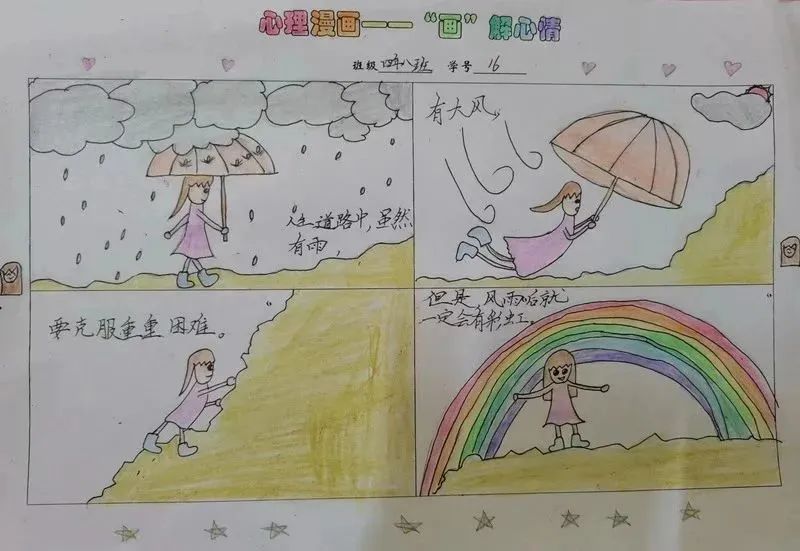 心理漫画——“画”解心情
班级 四年八班 学号 16
人生道路中,虽然
有雨,
有大风。
要克服重重困难。
但是,风雨后就
一定会有彩虹。